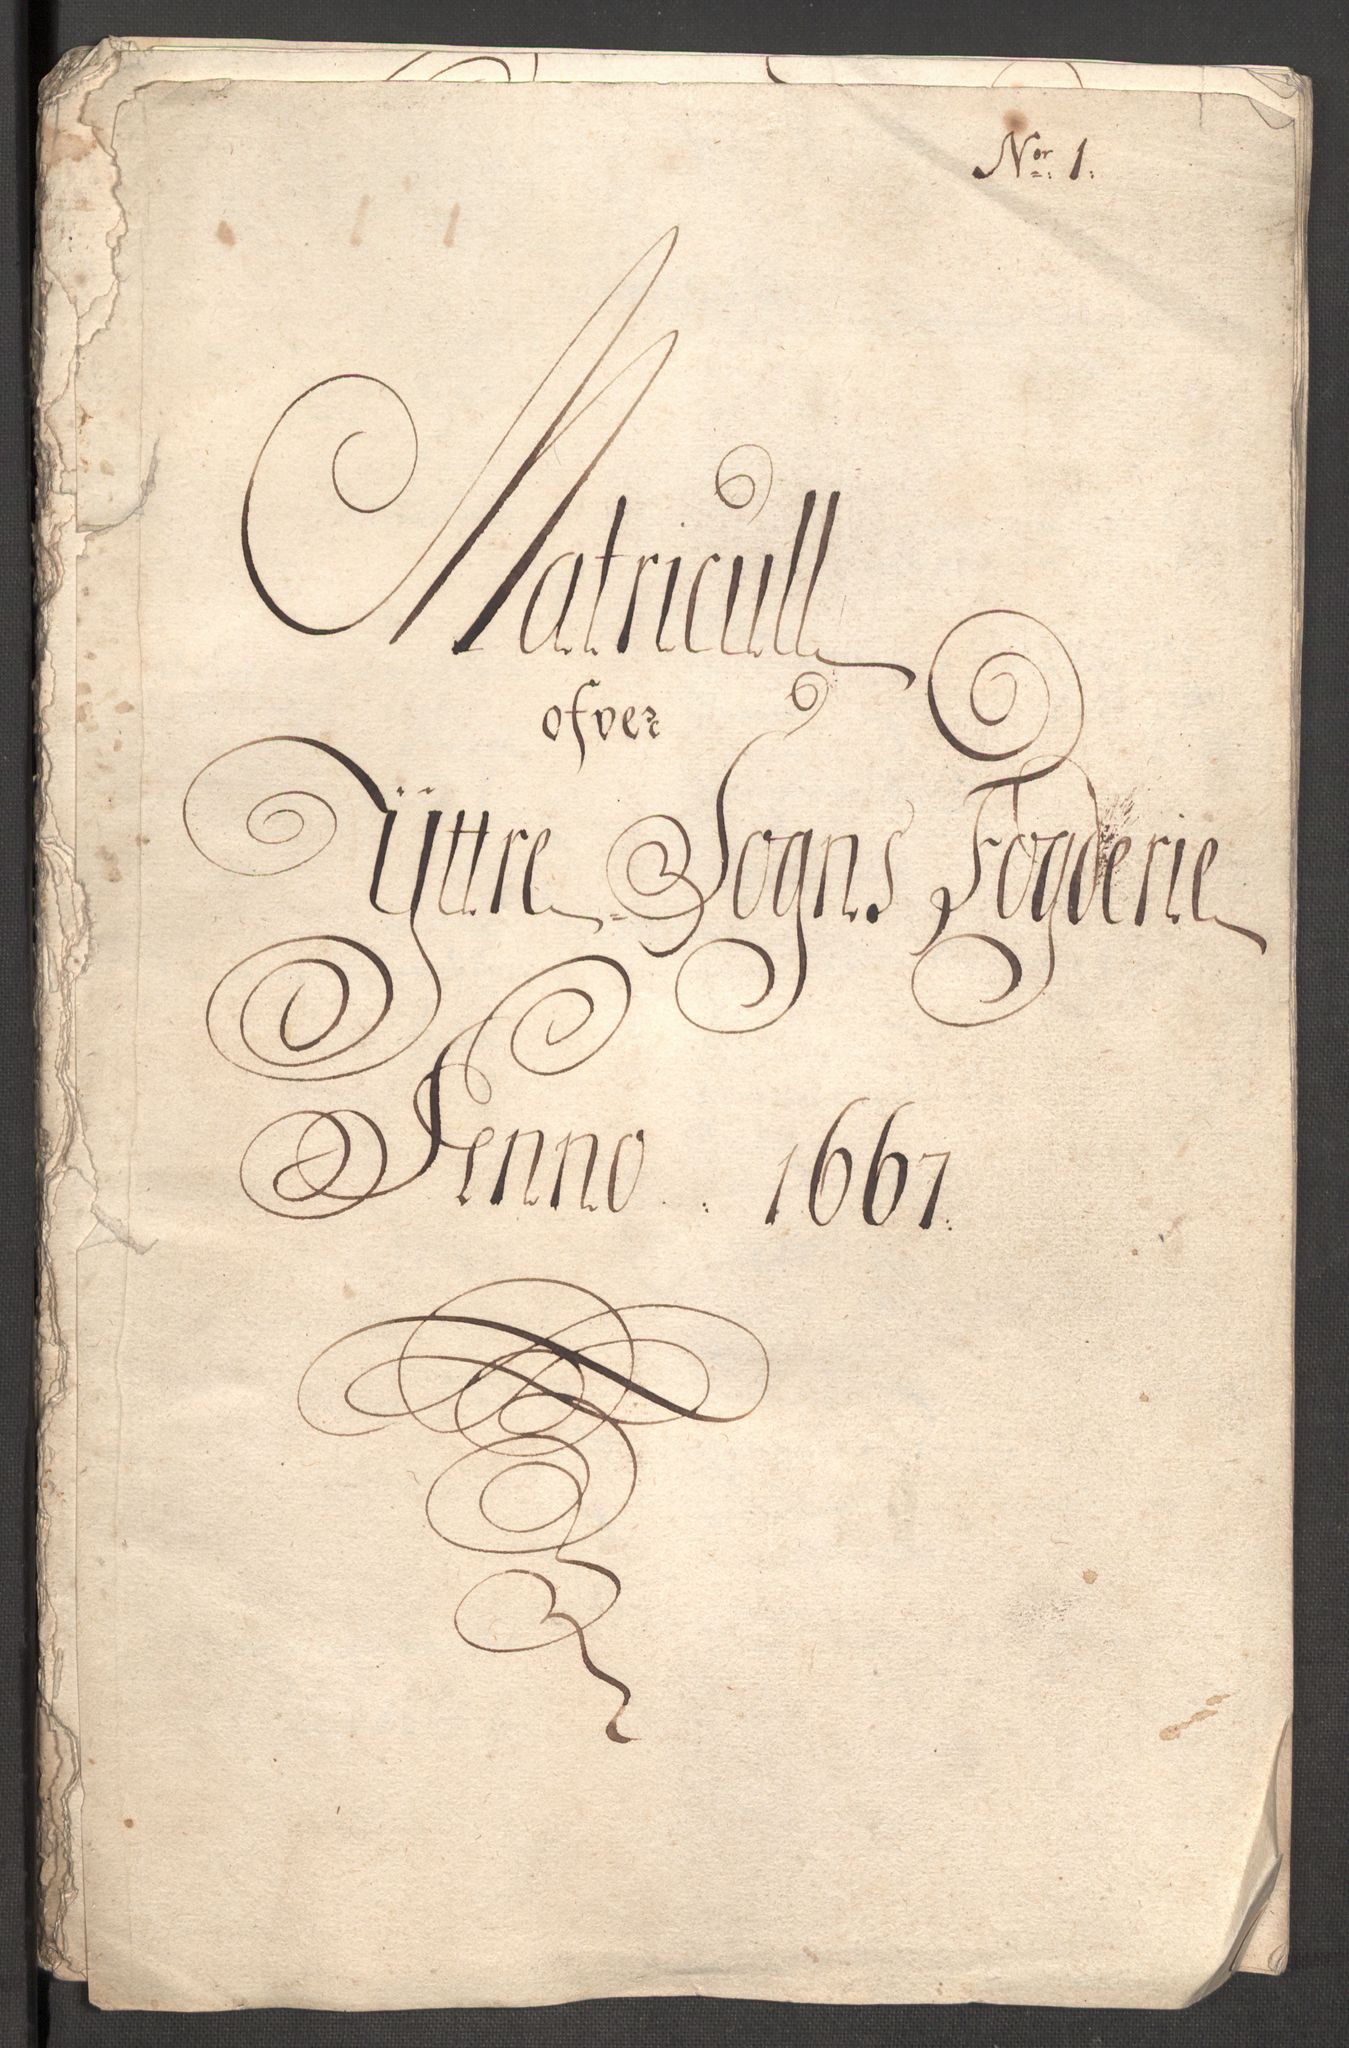 Nor: 1.
Matricull
ofver
Ÿttre Sogns Fogderie
Anno 1667.